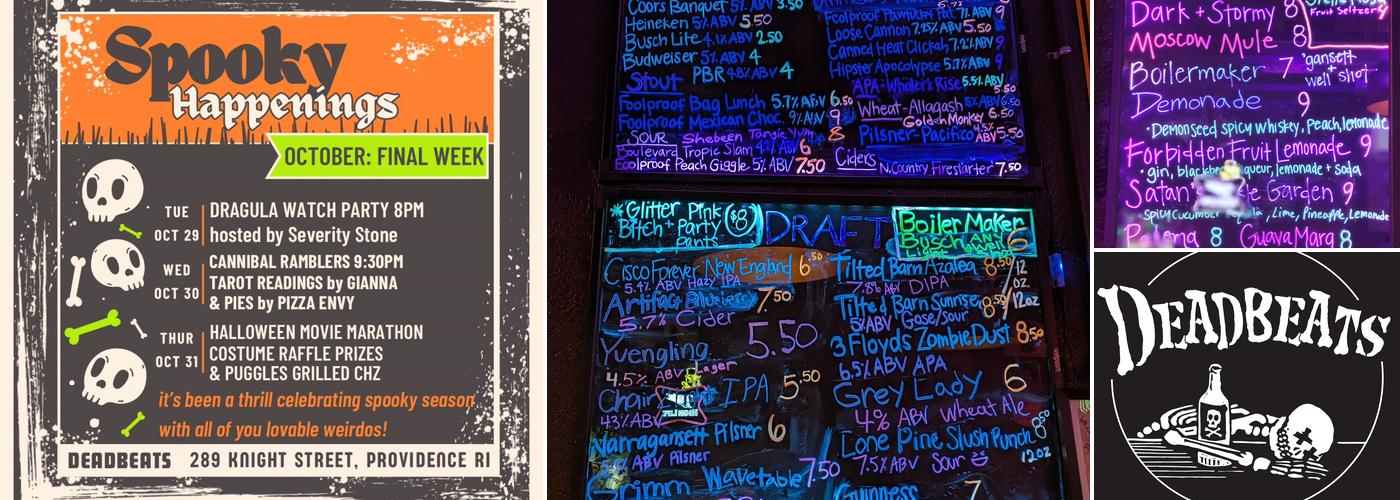 Spooky
Happenings
OCTOBER: FINAL WEEK
TUE
OCT 29
DRAGULA WATCH PARTY 8PM
hosted by Severity Stone
WED
OCT 30
CANNIBAL RAMBLERS 9:30PM
TAROT READINGS by GIANNA
& PIES by PIZZA ENVY
THUR
OCT 31
HALLOWEEN MOVIE MARATHON
COSTUME RAFFLE PRIZES
& PUGGLES GRILLED CHZ
it's been a thrill celebrating spooky season
with all of you lovable weirdos!
DEADBEATS 289 KNIGHT STREET, PROVIDENCE RI
Coors Banquet 5% ABV 3.50
Heineken 5% ABV 5.50
Busch Lite 4.1% ABV 2.50
Budweiser 5% ABV 4
PBR 4.8% ABV 4
Stout
Foolproof Bag Lunch 5.7% ABV 6.50
Foolproof Mexican Choc. 9% ABV 9
SOUR Shebeen Tangie Yum 8
Boulevard Tropic Slam 4.2% ABV 6
Foolproof Peach Giggle 5% ABV 7.50
Foolproof Pawtucket Pat. 7% ABV 9
Loose Cannon 7.25% ABV 5.50
Canned Heat Clickah 7.2% ABV 9
Hipster Apocalypse 5.7% ABV 9
APA-Whaler's Rise 5.5% ABV
5.50
Wheat-Allagash 5% ABV 6.50
Golden Monkey 6.50
Pilsner-Pacifico 4.5% ABV 5.50
Ciders N. Country Firestarter 7.50
*Glitter Pink
Bitch + Party
Pants
$8
DRAFT
Boiler Maker
Busch
6
Cisco Forever New England 6.50
5.4% ABV Hazy IPA
Artifact
7.50
5.7% Cider
Yuengling 5.50
4.5% ABV Lager
Chair IPA 5.50
4.3% ABV
Narragansett Pilsner 6
ABV Pilsner
Grimm Wavetable 7.50
Tilted Barn Azalea 8.50/12 oz.
7.8% ABV DIPA
Tilted Barn Sunrise 8.50/12oz
5% ABV Gose/Sour
3 Floyds Zombie Dust 8.50
6.5% ABV APA
Grey Lady 6
4% ABV Wheat Ale
Lone Pine Slush Punch 8
12oz
7.5% ABV Sour
Guinness 7
Dark + Stormy 8
Fruit Seltzer
Moscow Mule 8
Boilermaker 7 'gansett
+
well shot
Demonade 9
•Demonseed spicy whiskey, Peach, lemonade
Forbidden Fruit Lemonade 9
•gin, liqueur, lemonade + soda
Satan's Garden 9
Spicy Cucumber Tequila, Lime, Pineapple, Lemonade
Paloma 8 Guava Marg 8
DEADBEATS